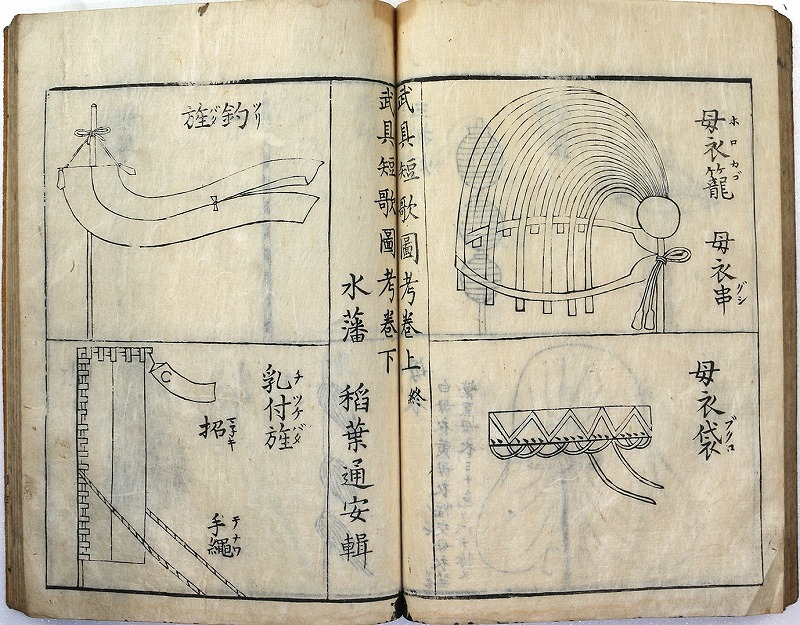 母衣籠
ホロカゴ
母衣串
グシ
母衣袋
ブクロ
武具短歌圖考卷上
終
武具短歌圖考卷下
水藩 稻葉通安輯
釣旌
ツリバタ
乳付旌
チツケバタ
招
マネキ
手繩
テナワ